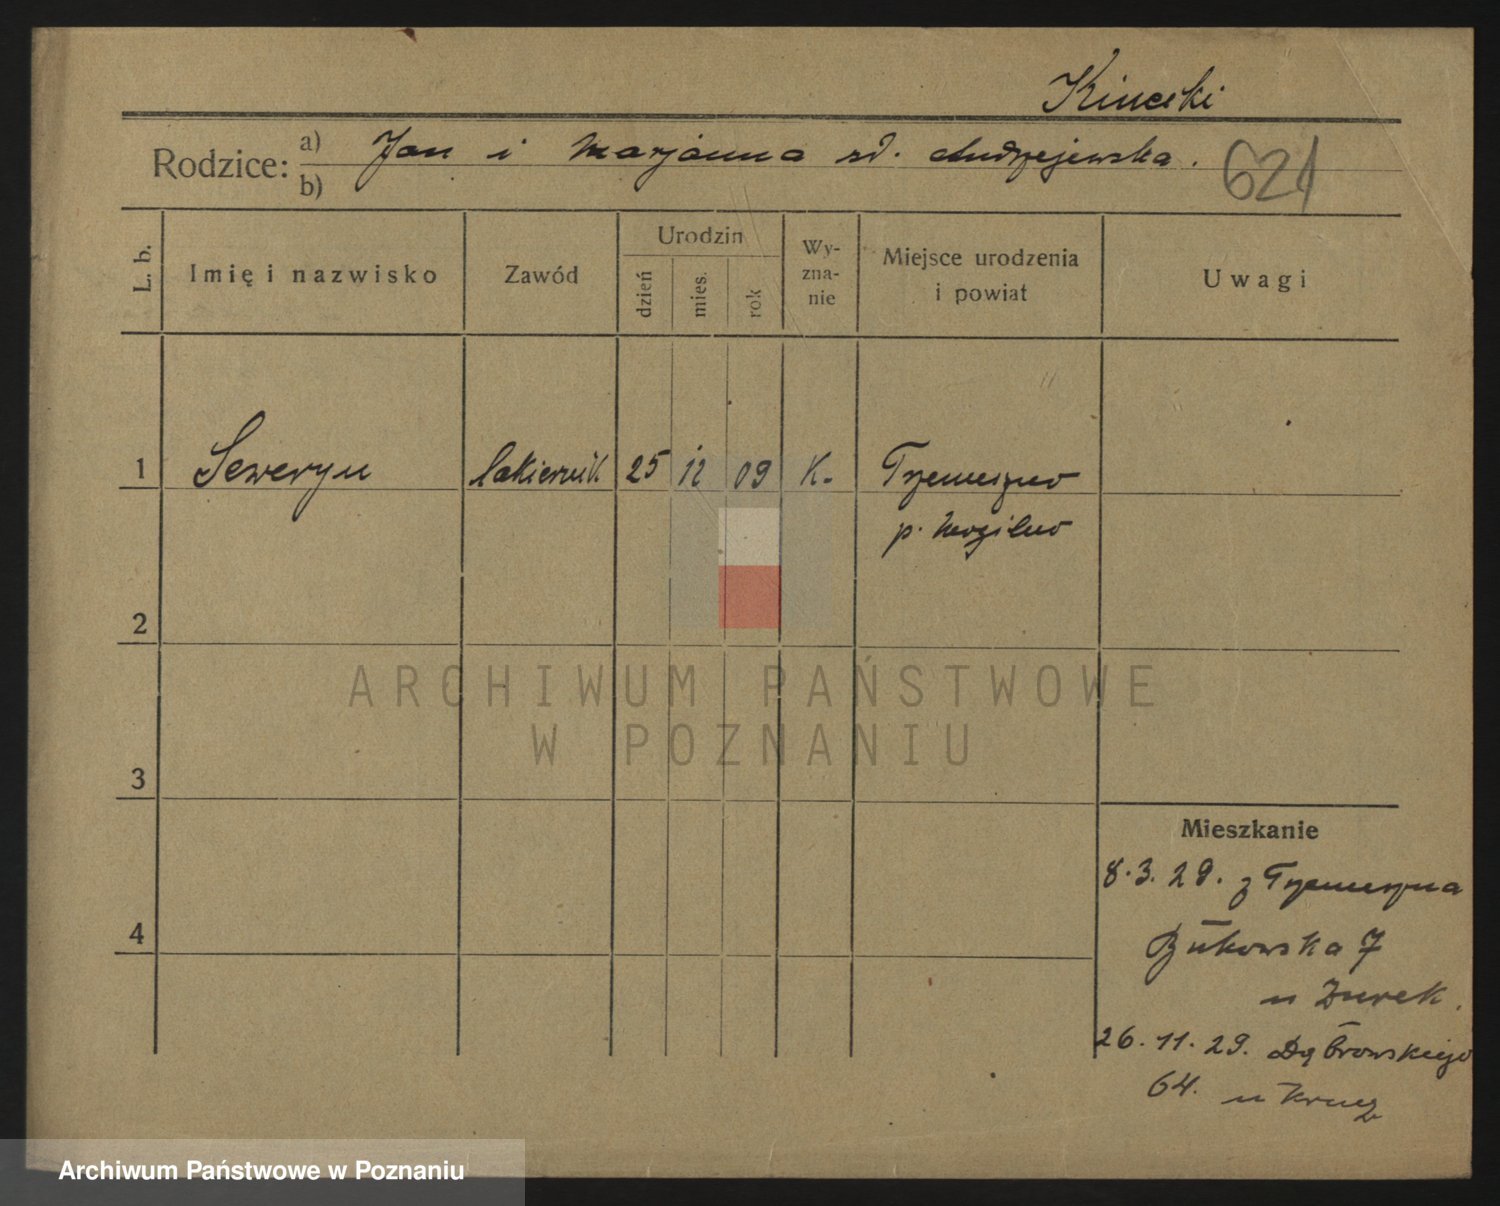 Kinecki
Rodzice: a) Jan i Marjanna zd. Andrzejewska.
b)
621
L. b.
Imię i nazwisko
Zawód
Urodzin
dzień
mies.
rok
Wy-
zna-
nie
Miejsce urodzenia
i powiat
Uwagi
1 Seweryn lakiernik 25 12 09 K. Trzemeszno
p. Mogilno
2
ARCHIWUM PAŃSTWOWE
W POZNANIU
3
Mieszkanie
8.3.29. z Trzemeszna
4
Bukowska 7
u Żurek.
26.11.29. Dąbrowskiego
64. u
Archiwum Państwowe w Poznaniu